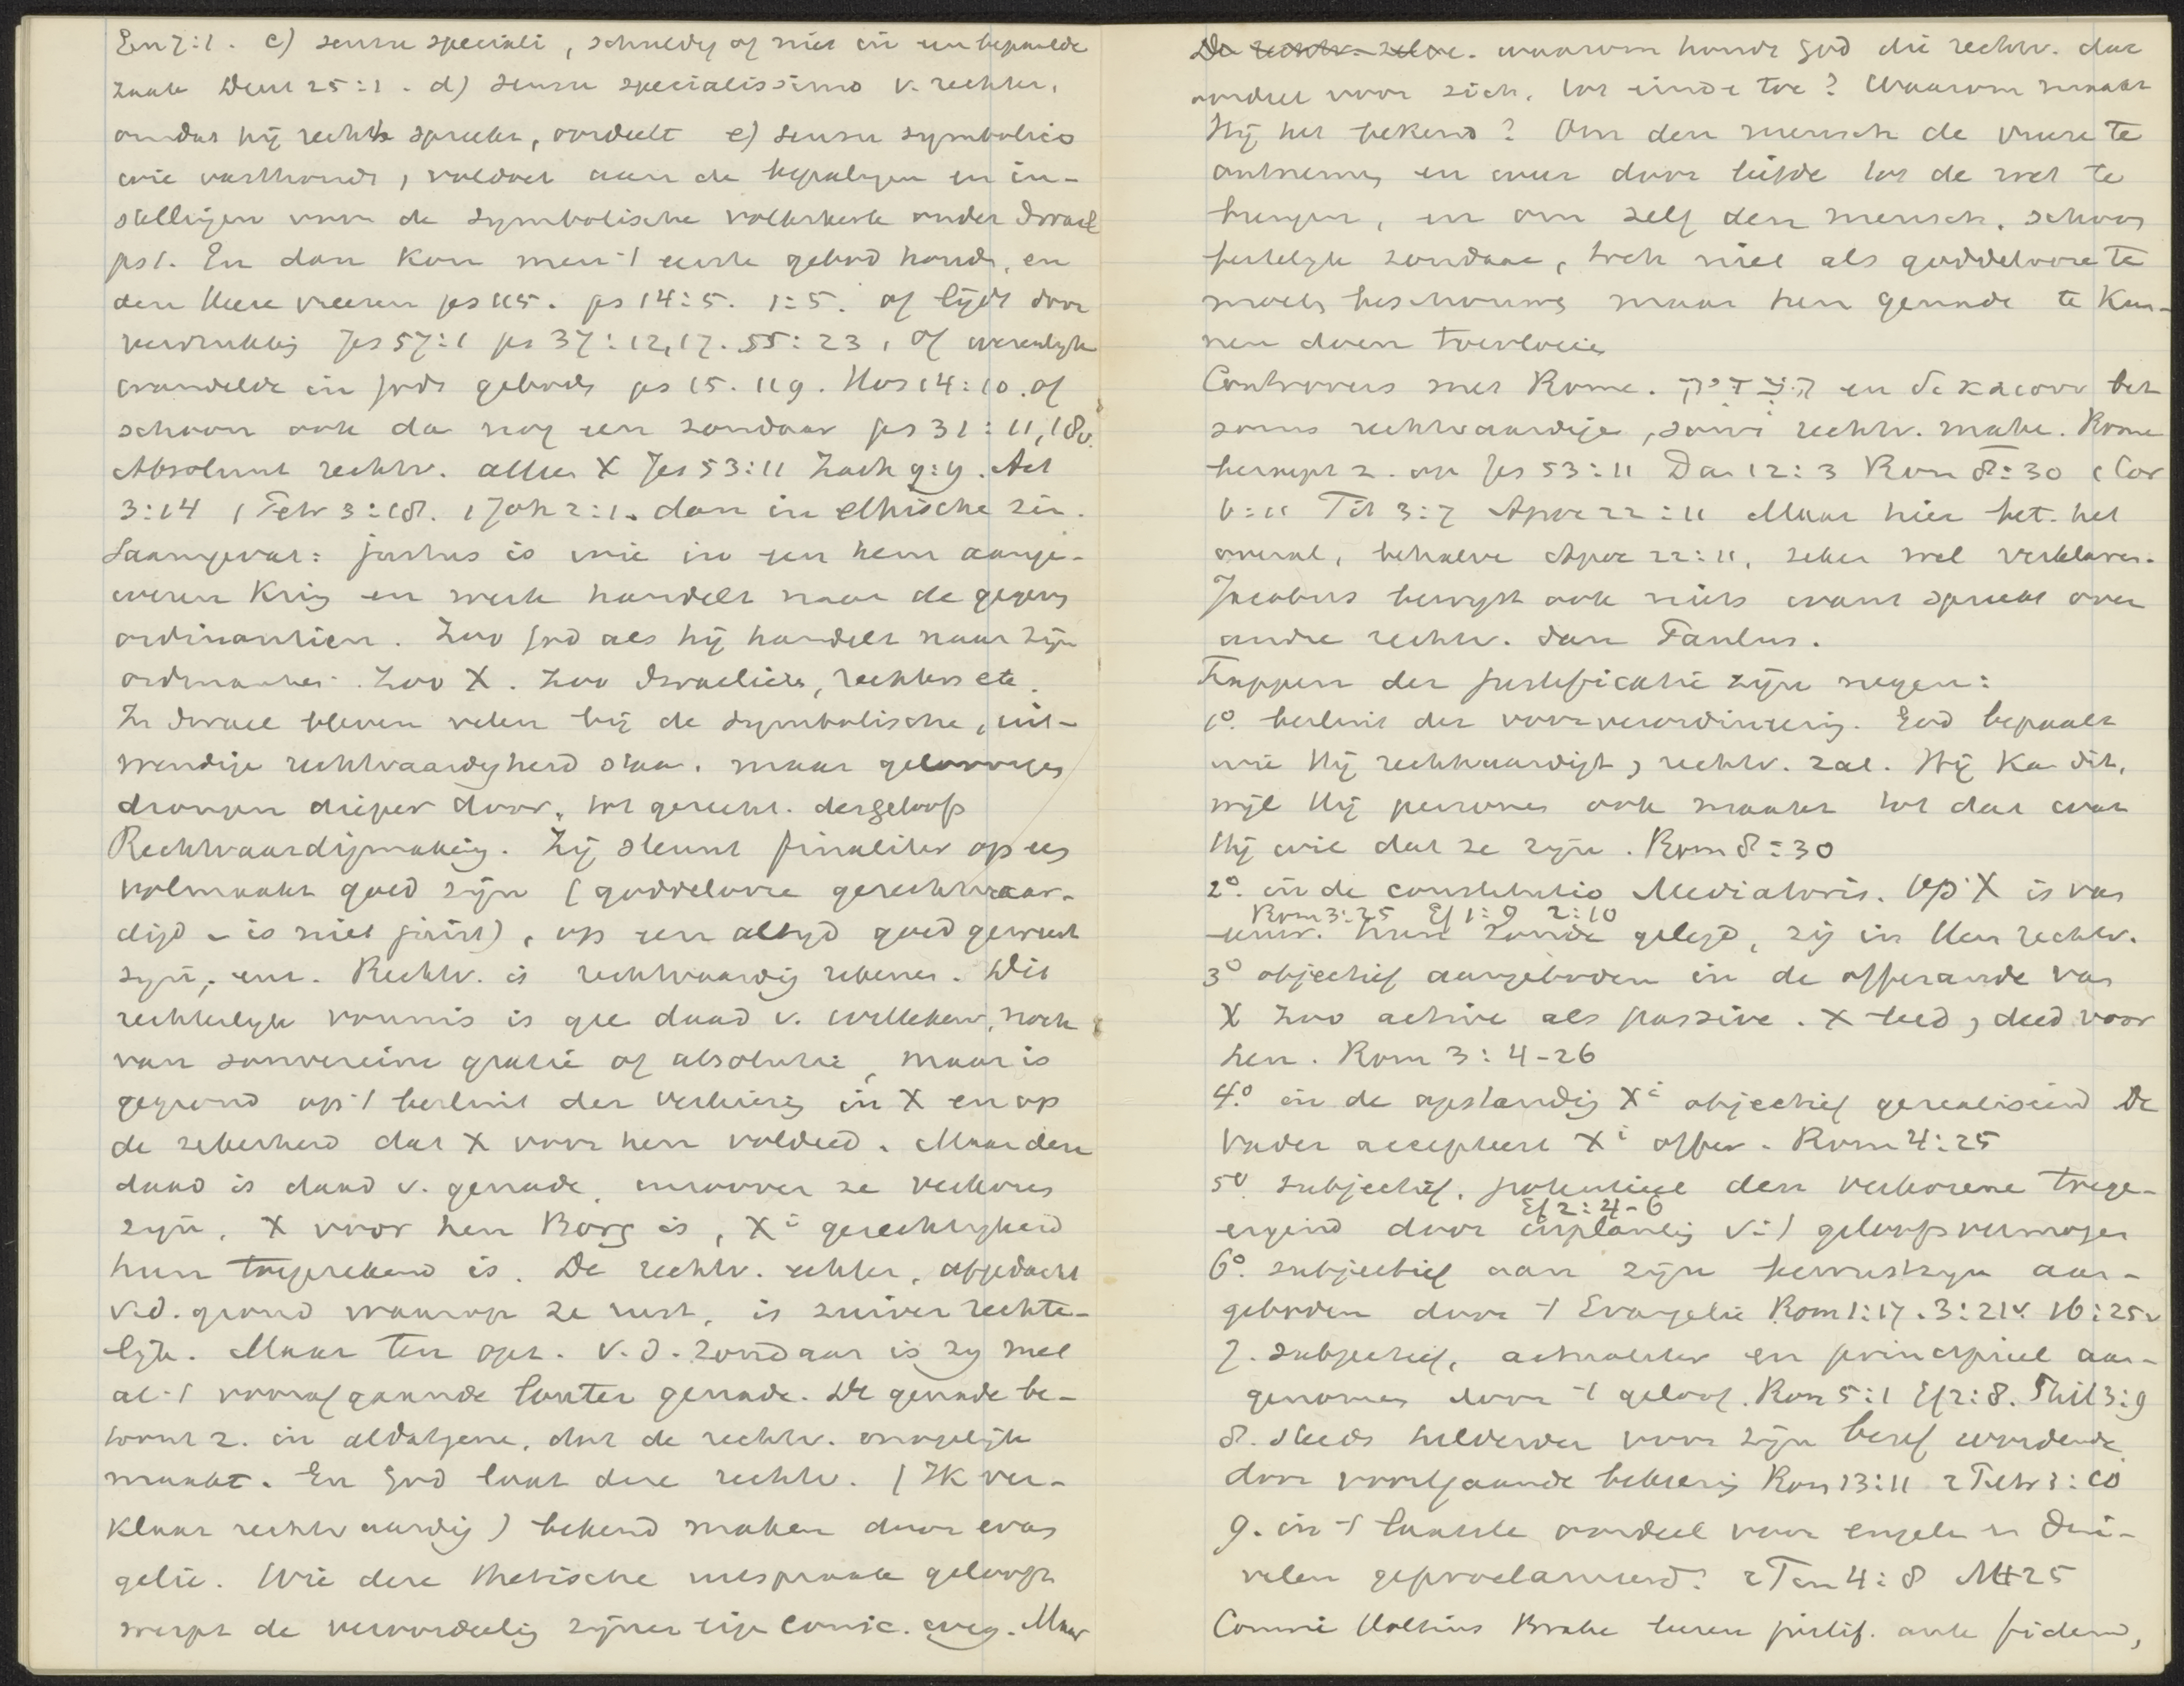 Gen 7:1. c) sensu speciali, schuldig of niet in een bepaalde
zaak Deut 25:1. d) sensu specialissimo v. rechter,
omdat hij recht spreekt, oordeelt e) sensu symbolico
wie vasthoudt, voldoet aan de bepalingen en in-
stellingen van de symbolische volkskerk onder Israel
ps 1. En dan kan men 't eerste gebod houden, en
den Heere vreezen ps 115. ps 14:5. 1:5. of lijdt door
verdrukking Jes 57:1 ps 37:12,17. 55:23, of werkelijk
wandelde in Gods geboden ps 15. 119. Hos 14:10. of
schoon ook dan nog een zondaar ps 31:11,18v.
Absoluut rechtv. alleen X Jes 53:11 Zach 9:9. Act
3:14 1 Petr 3:18. 1 Joh 2:1. dan in ethische zin.
Saamgevat: justus is wie in een hem aange-
wezen kring en werk handelt naar de gegeven
ordinantien. Zoo God als hij handelt naar zijn
ordinanties. Zoo X. Zoo Israeliers, rechters etc.
In Israel bleven velen bij de symbolische, uit-
wendige rechtvaardigheid staan. maar geloovigen
drongen dieper door, tot gerecht. des geloofs
Rechtvaardigmaking. Zij steunt finaliter op een
volmaakt goed zijn (goddelooze gerechtvaar-
digd - is niet juist), op een altijd goed geweest
zijn, enz. Rechtv. is rechtvaardig rekenen. Dit
rechterlijk vonnis is gee daad v. willekeur, noch
van souvereine gratie of absolutie, maar is
gegrond op 't besluit der verkiezing in X en op
de zekerheid dat X voor hen voldeed. Maar deze
daad is daad v. genade, waarover ze verkoren
zijn, X voor hen Borg is, Xi gerechtigheid
hun toegerekend is. De rechtv. echter, afgedacht
v.d. grond waarop ze rust, is zuiver rechte-
lijk. Maar ten opz. v.d. zondaar is zij met
al 't voorafgaande louter genade. De genade be-
toont z. in aldatgene, dat de rechtv. mogelijk
maakt. En God laat deze rechtv. (Ik ver-
klaar rechtvaardig) bekend maken door evan
gelie. Wie deze thetische uitspraak gelooft
werpt de veroordeeling zijner eige consc. weg. Maar
De rechtv. zelve. waarom houdt God die rechtv. dat
oordeel voor zich, tot einde toe? Waarom maakt
Hij het bekend? Om den mensch de vreze te
ontnemen en weer door liefde tot de wet te
brengen, en om zelf den mensch, schoon
feitelijk zondaar, toch niet als goddelooze te
moeten beschouwen maar hen genade te kun-
nen doen toevloeien
Controvers met Rome. הצדיק en δικαιουν bet
soms rechtvaardige, soms rechtv. maken. Rome
beroept z. op Jes 53:11 Dan 12:3 Rom 8:30 1 Cor
6:11 Tit 3:7 Apoc 22:11 Maar hier bet. het
overal, behalve Apoc 22:11, zeker wel verklaren.
Jacobus bewijst ook niets want spreekt over
andre rechtv. dan Paulus.
Trappen der justificatie zijn negen:
1o. besluit der voorverordineering. God bepaalt
wie Hij rechtvaardigt, rechtv. zal. Hij ka dit,
wijl Hij personen ook maakt tot dat wat
Hij wie dat ze zijn. Rom 8:30
2o. in de constitutio Mediatoris. Op X is van
Rom 3:25 Ef 1:9 2:10
hunne zonde gelegd, zij in Hem rechtv.
3o objectief aangeboden in de offerande van
X zoo active als passive. X leed, deed voor
hen. Rom 3:4-26
4.o in de opstanding Xi objectief gerealiseerd De
Vader accepteert Xi offer. Rom 4:25
5o. subjectief, potentieel den verkorene toege-
Ef 2:4-6
eigend door inplanting v.'t geloofsvermogen
6o. subjectief aan zijn bewustzijn aan-
geboden door 't Evangelie Rom 1:17. 3:21v. 16:25v
7. subjectief, actualiter en principieel aan-
genomen door 't geloof. Rom 5:1 Ef 2:8. Phil 3:9
8. steeds helderder voor zijn besef wordende
door voortgaande bekeering Rom 13:11 2 Petr 1:10
9. in 't laatste oordeel voor engelen en dui-
velen geproclameerd. 2 Tim 4:8 Mt 25
Comrie Holtius Brahe leeren justif. ante fidem,